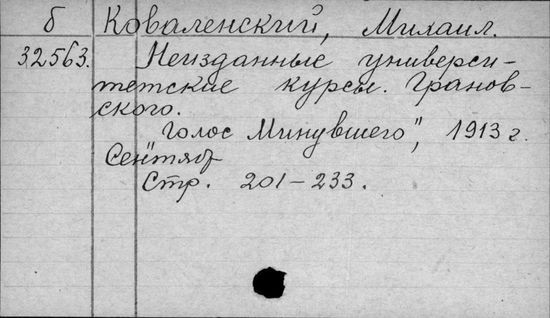 б Коваленский, Михаил.
32563. Неизданные универси-
тетские курсы. Гранов-
ского.
Голос Минувшего", 1913 г.
Сентяб
Стр. 201-233.